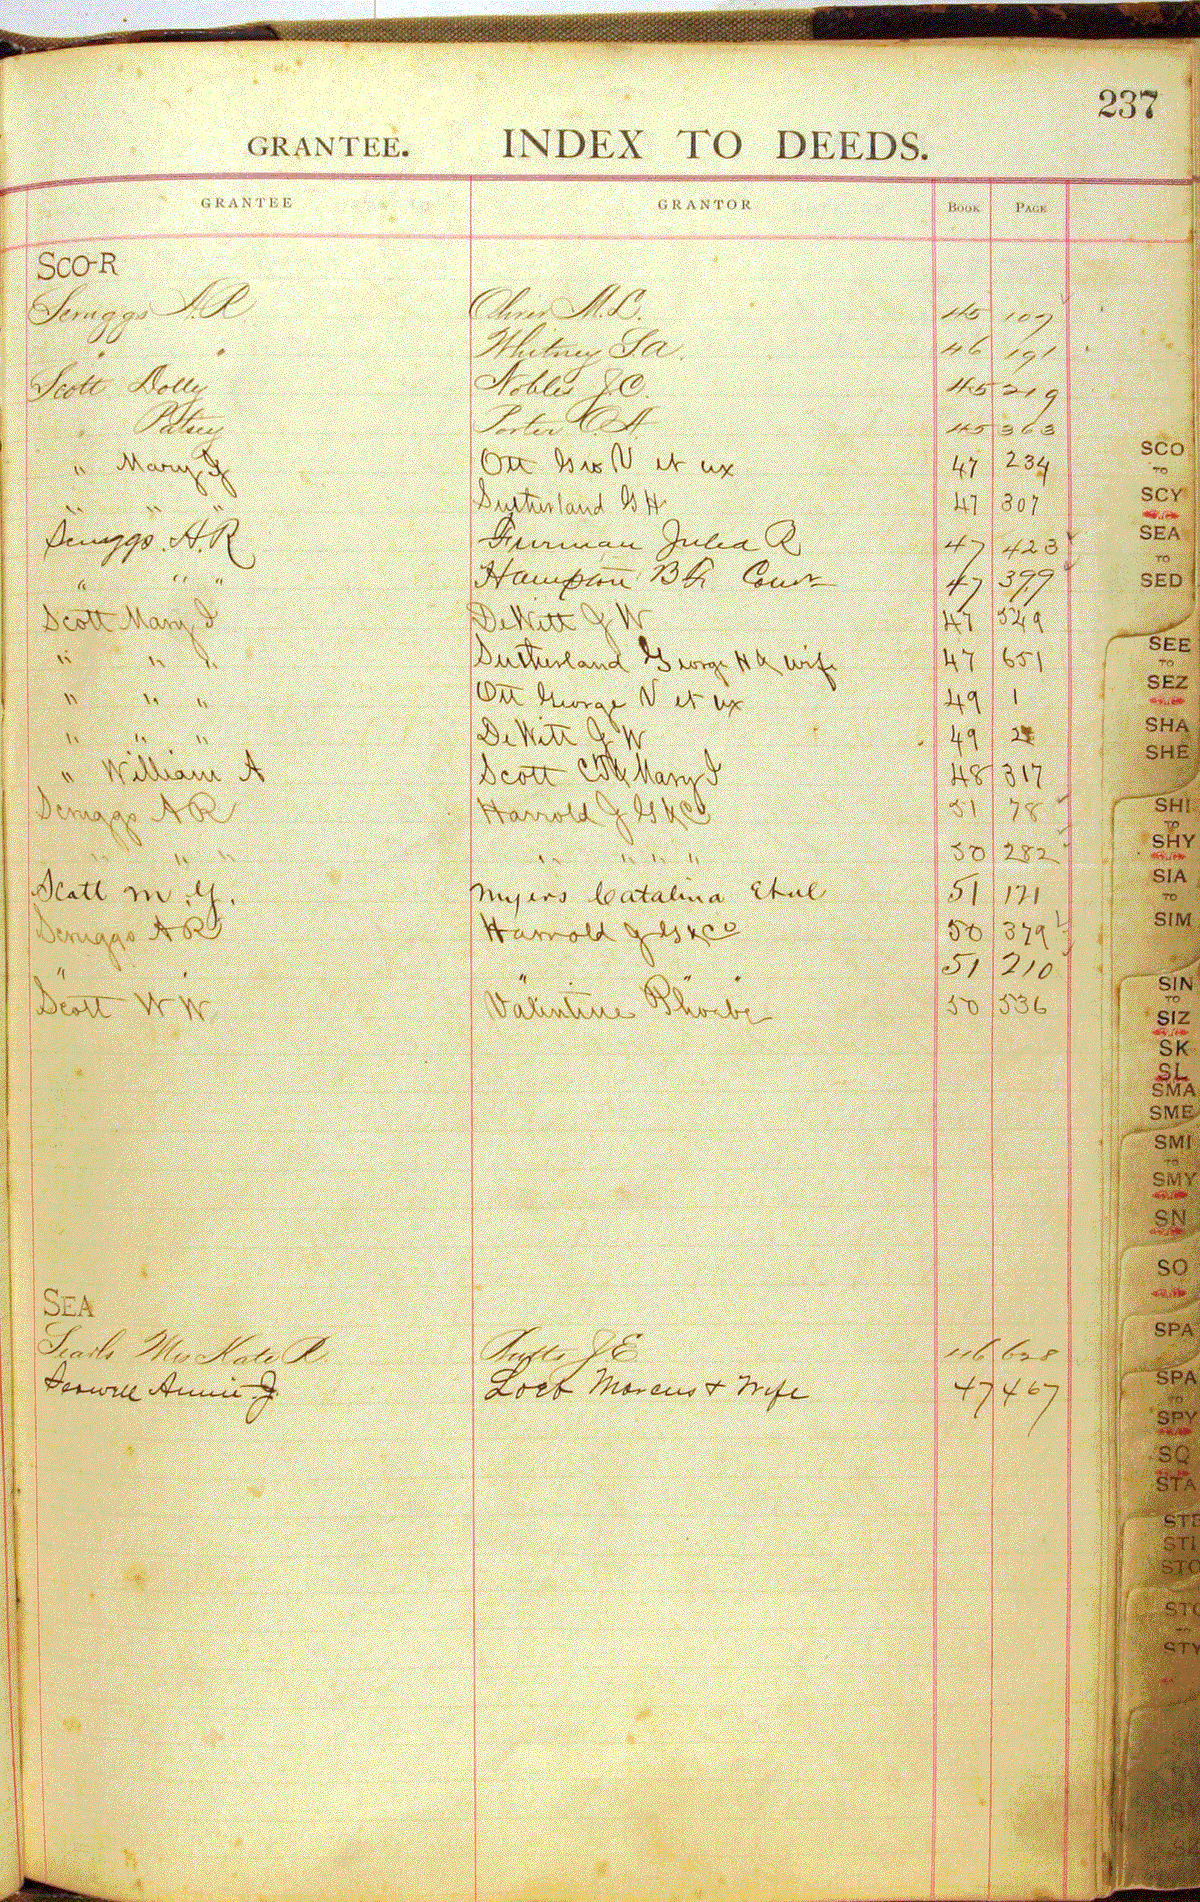 237
GRANTEE. INDEX TO DEEDS.
GRANTEE GRANTOR BOOK PAGE
SCO-R
Scruggs A.R. Oliver M.L. 45 107
" " Whitney S A. 46 191
Scott Dolly Nobles J.C. 45 219
" Patsy Porter C.H. 45 363
" Mary J Ott Geo V et ux 47 234
" " " Sutherland G H 47 307
Scruggs. A.R Furman Julia R 47 423
" " " Hampton B 47 399
Scott Mary J DeWitt J W 47 549
" " " Sutherland George H & wife 47 651
" " " Ott George V et ux 49 1
" " " DeWitt J W 49 2
" William A Scott & Mary J 48 317
Scruggs A R Harrold J G & Co 51 78
" " " " " " " 50 282
Scott M. J. Myers Catalina Et al 51 171
Scruggs A R Harrold J G & Co 50 379
" " " " 51 210
Scott W W. Valentine Phoebe 50 536
SEA
Searls Mrs Kate R. Butts J E 46 628
Annie J Loeb Marcus & Wife 47 467
SCO
TO
SCY
SEA
TO
SED
SEE
TO
SEZ
SHA
SHE
SHI
TO
SHY
SIA
TO
SIM
SIN
TO
SIZ
SK
SL
SMA
SME
SMI
TO
SMY
SN
SO
SPA
SPA
TO
SPY
SQ
STA
STE
STI
STO
STO
TO
STY